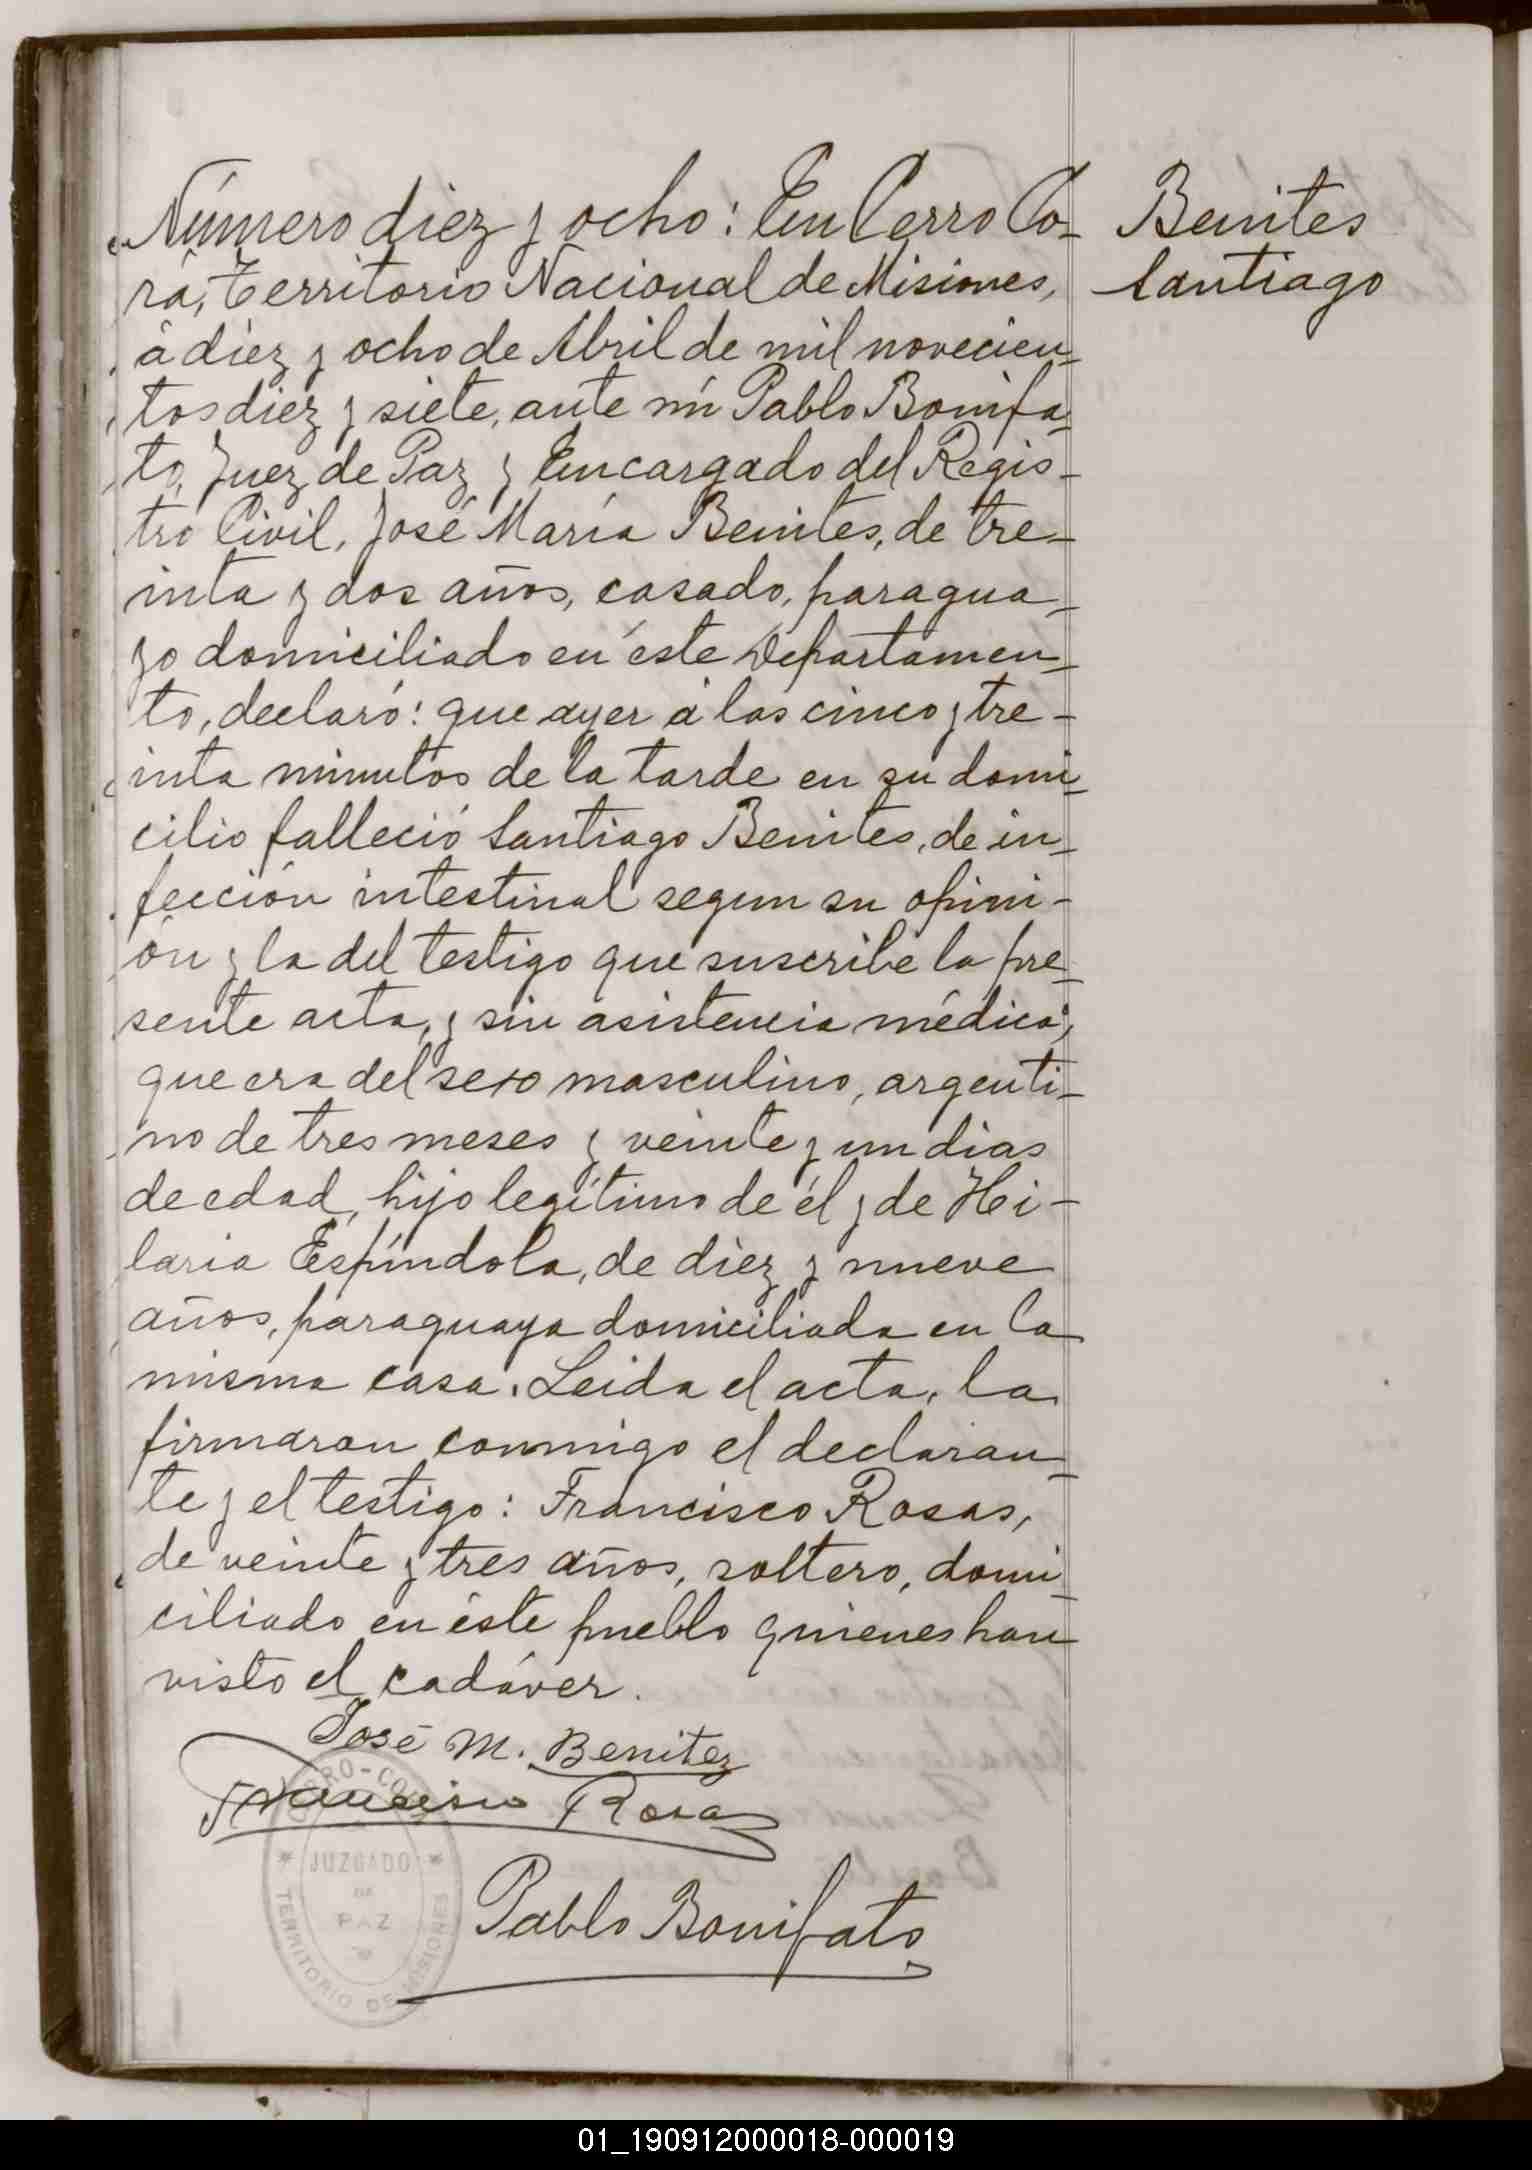 Número diez y ocho: En Cerro Co-
rá, Territorio Nacional de Misiones,
á diez y ocho de Abril de mil novecien-
tos diez y siete, ante mí Pablo Bonifa-
to, Juez de Paz y Encargado del Regis-
tro Civil, José María Benites, de tre-
inta y dos años, casado, paragua-
yo domiciliado en éste Departamen-
to, declaró: que ayer á las cinco y tre-
inta minutos de la tarde en su domi-
cilio falleció Santiago Benites, de in-
fección intestinal segun su opini-
ón y la del testigo que suscribe la pre-
sente acta, y sin asistencia médica;
que era del sexo masculino, argenti-
no de tres meses y veinte y un dias
de edad, hijo legítimo de él y de Hi-
laria Espíndola, de diez y nueve
años, paraguaya domiciliada en la
misma casa. Leida el acta, la
firmaron conmigo el declaran-
te y el testigo: Francisco Rosas,
de veinte y tres años, soltero, domi-
ciliado en éste pueblo quienes han
visto el cadáver.
José M. Benitez
Francisco Rosas
Pablo Bonifato
Benites
Santiago
CERRO-CORÁ
JUZGADO
DE
PAZ
TERRITORIO DE MISIONES
01_190912000018-000019